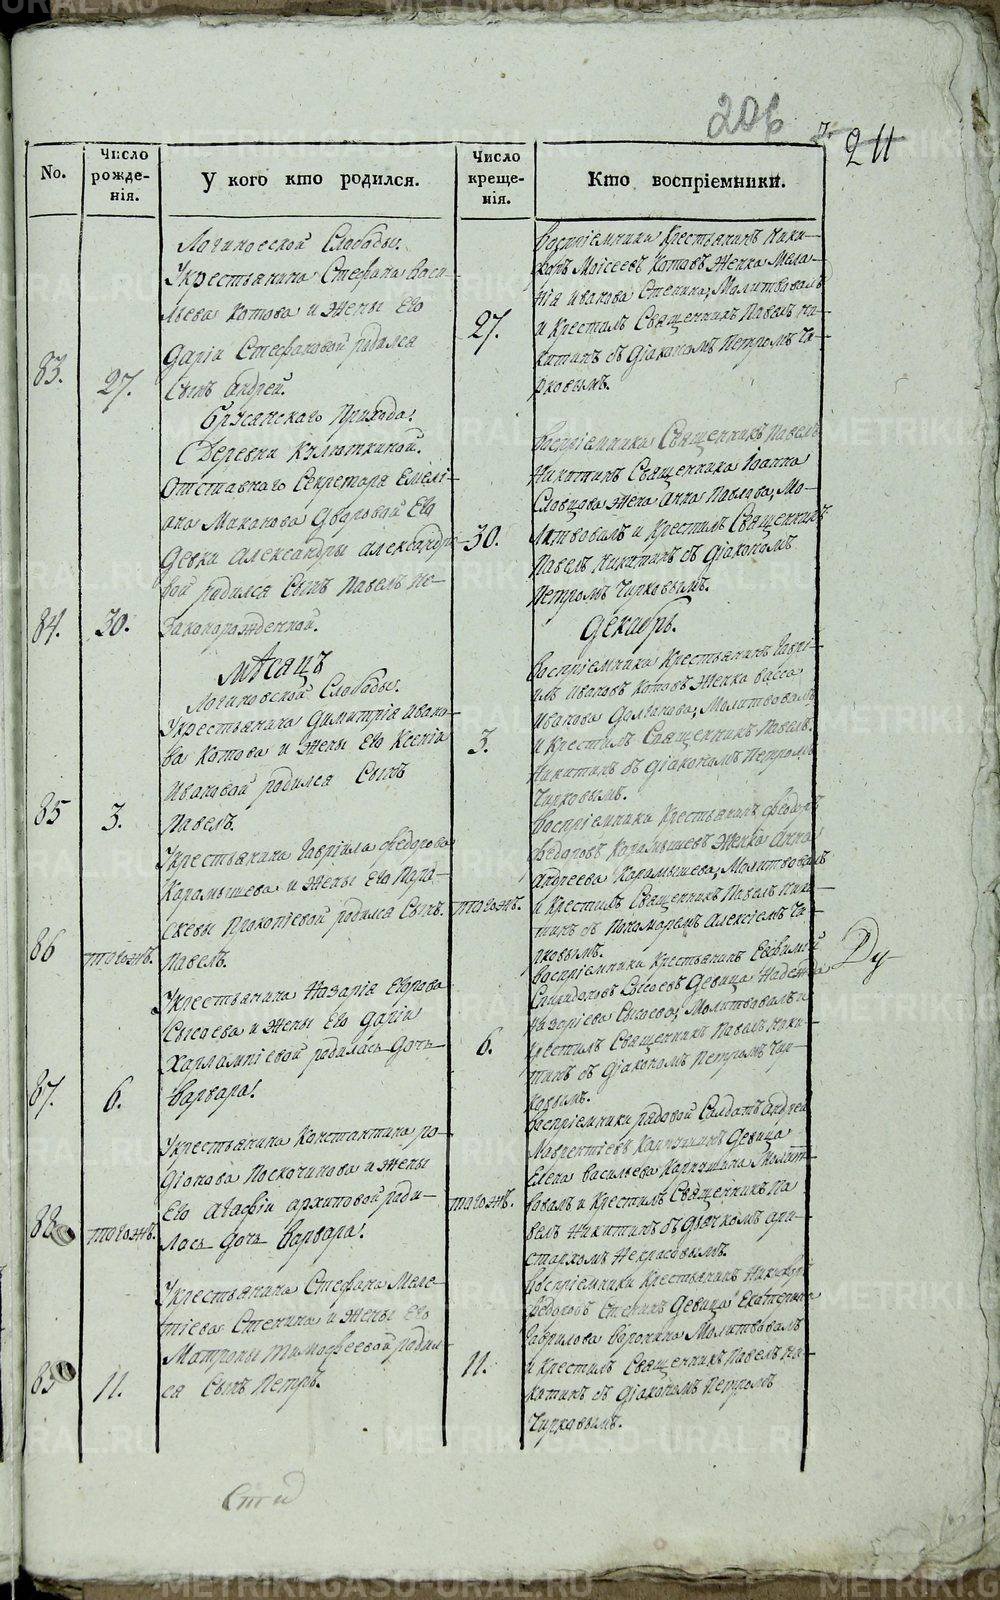 206
211
No.
Число рожде-нія.
У кого кто родился.
Число креще-нія.
Кто воспріемники.
Логиновской Слободы.
У крестьянина Стефана Васи-
льева Котова и жены Его
Даріи Стефановой родился
83. 27. Сынъ Андрей.
27.
Воспріемники Крестьянинъ Ники-
форъ Моісеевъ Котовъ Женка Мела-
нія Иванова Стенина; Молитвовалъ
и Крестилъ Священникъ Павелъ Ни-
китинъ съ Діакономъ Петромъ Чи-
рковымъ.
Прихода!
Деревни
Отставнаго Секретаря Емелі-
ана Маканова Дворовой Его
Девки Александры Александро-
вой родился Сынъ Павелъ не-
84. 30. законорожденной.
30.
Воспріемники Священникъ Павелъ
Никитинъ Священника Іоанна
Словцова жена Анна Павлова; Мо-
литвовалъ и Крестилъ Священникъ
Павелъ Никитинъ съ Діакономъ
Петромъ Чирковымъ.
Мѣсяцъ Декабрь.
Логиновской Слободы.
У крестьянина Димитрія Ивано-
ва Котова и жены Его Ксеніи
Ивановой родился Сынъ
85 3. Павелъ.
3.
Воспріемники Крестьянинъ Гаврі-
илъ Ивановъ Котовъ Женка Васса
Иванова; Молитвовалъ
и Крестилъ Священникъ Павелъ
Никитинъ съ Діакономъ Петромъ
Чирковымъ.
У крестьянина Гавріила Федорова
Карамышева и жены Его Пара-
скевы Прокопіевой родился Сынъ.
86 тогожъ. Павелъ.
тогожъ.
Воспріемники Крестьянинъ Феодоръ
Федоровъ Карамышевъ Женка Анна
Андреева Карамышева; Молитвовалъ
и Крестилъ Священникъ Павелъ Ники-
тинъ съ Пономаремъ Алексіемъ Чи-
рковымъ.
У крестьянина Назарія Егорова
Сысоева и жены Его Даріи
Харлампіевой родилась дочь
87. 6. Варвара!
6.
Воспріемники Крестьянинъ Евфимій
Спиридоновъ Сысоевъ Девица Надежда
Назаріева Сысоева; Молитвовалъ и
Крестилъ Священникъ Павелъ Ники-
тинъ съ Діакономъ Петромъ Чир-
ковымъ.
У крестьянина Константина Ро-
діонова Поскочинова и жены
Его Агафіи Архиповой роди-
88 тогожъ. лась дочь Варвара!
тогожъ.
Воспріемники рядовой Солдатъ Андрей
Лаврентіевъ Девица
Елена Васильева Молит-
вовалъ и Крестилъ Священникъ Па-
велъ Никитинъ съ Дьячкомъ Ари-
стархомъ Некрасовымъ.
У крестьянина Стефана Меле-
тіева Стенина и жены Его
Матроны Тимофеевой родил-
89 11. ся Сынъ Петръ.
11.
Воспріемники Крестьянинъ Никифоръ
Федоровъ Стенинъ Девица Екатерина
Гаврилова Воронина Молитвовалъ
и Крестилъ Священникъ Павелъ Ни-
китинъ съ Діакономъ Петромъ
Чирковымъ.
METRIKI.GASO-URAL.RU